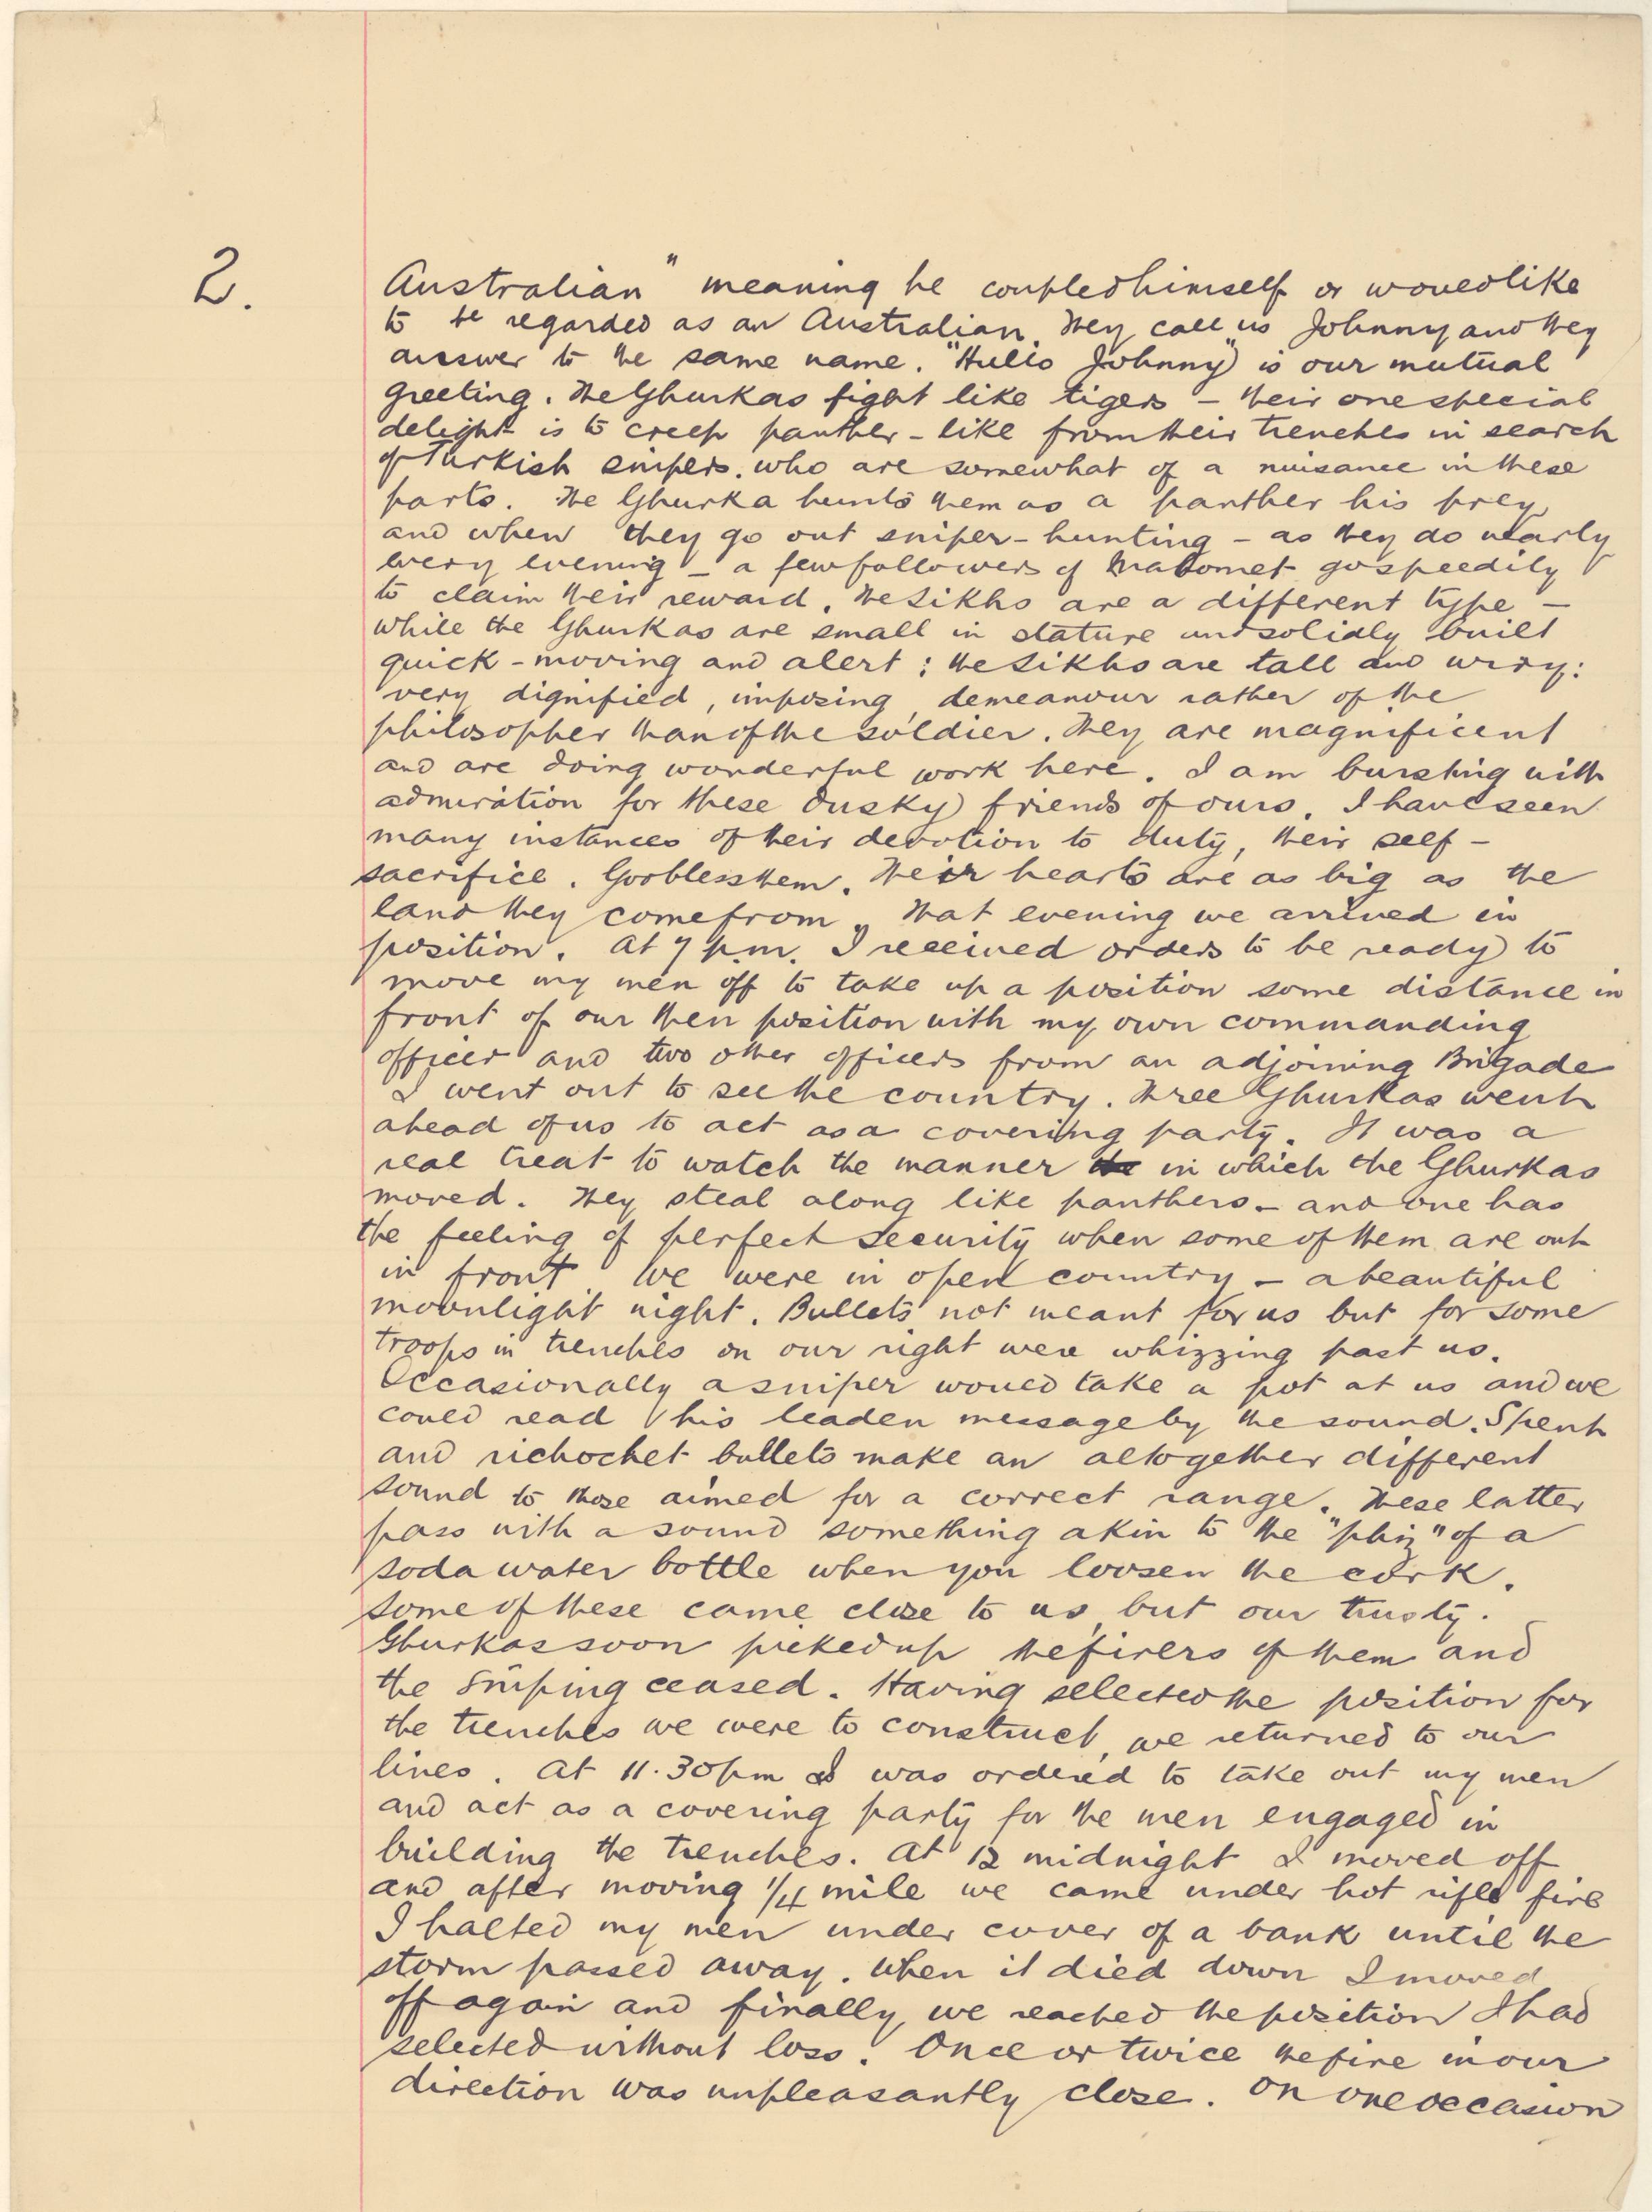 2.
Australian" meaning he coupled himself or would like
to be regarded as an Australian. They call us Johnny and they
answer to the same name. "Hullo Johnny" is our mutual
greeting. The Ghurkas fight like tigers - their one special
delight is to creep panther-like from their trenches in search
of Turkish snipers. who are somewhat of a nuisance in these
parts. The Ghurka hunts them as a panther his prey,
and when they go out sniper-hunting - as they do nearly
every evening - a few followers of Mahomet go speedily
to claim their reward. The Sikhs are a different type -
while the Ghurkas are small in stature and solidly built
quick-moving and alert; the Sikhs are tall and wiry:
very dignified, imposing, demeanour rather of the
philosopher than of the soldier. They are magnificent
and are doing wonderful work here. I am bursting with
admiration for these dusky friends of ours. I have seen
many instances of their devotion to duty, their self-
sacrifice. God bless them. Their hearts are as big as the
land they come from. That evening we arrived in
position. At 7 p.m. I received orders to be ready to
move my men off to take up a position some distance in
front of our then position with my own commanding
officer and two other officers from an adjoining Brigade
I went out to see the country. Three Ghurkas went
ahead of us to act as a covering party. It was a
real treat to watch the manner in which the Ghurkas
moved. They steal along like panthers - and one has
the feeling of perfect security when some of them are out
in front. We were in open country - a beautiful
moonlight night. Bullets not meant for us but for some
troops in trenches on our right were whizzing past us.
Occasionally a sniper would take a pot at us and we
could read his leaden message by the sound. Spent
and richochet bullets make an altogether different
sound to those aimed for a correct range. These latter
pass with a sound something akin to the "phiz" of a
soda water bottle when you loosen the cork.
Some of these came close to us, but our trusty
Ghurkas soon picked up the firers of them and
the sniping ceased. Having selected the position for
the trenches we were to construct, we returned to our
lines. At 11.30pm I was ordered to take out my men
and act as a covering party for the men engaged in
building the trenches. At 12 midnight I moved off
and after moving 1/4 mile we came under hot rifle fire
I halted my men under cover of a bank until the
storm passed away. When it died down I moved
off again and finally, we reached the position I had
selected without loss. Once or twice the fire in our
direction was unpleasantly close. On one occasion